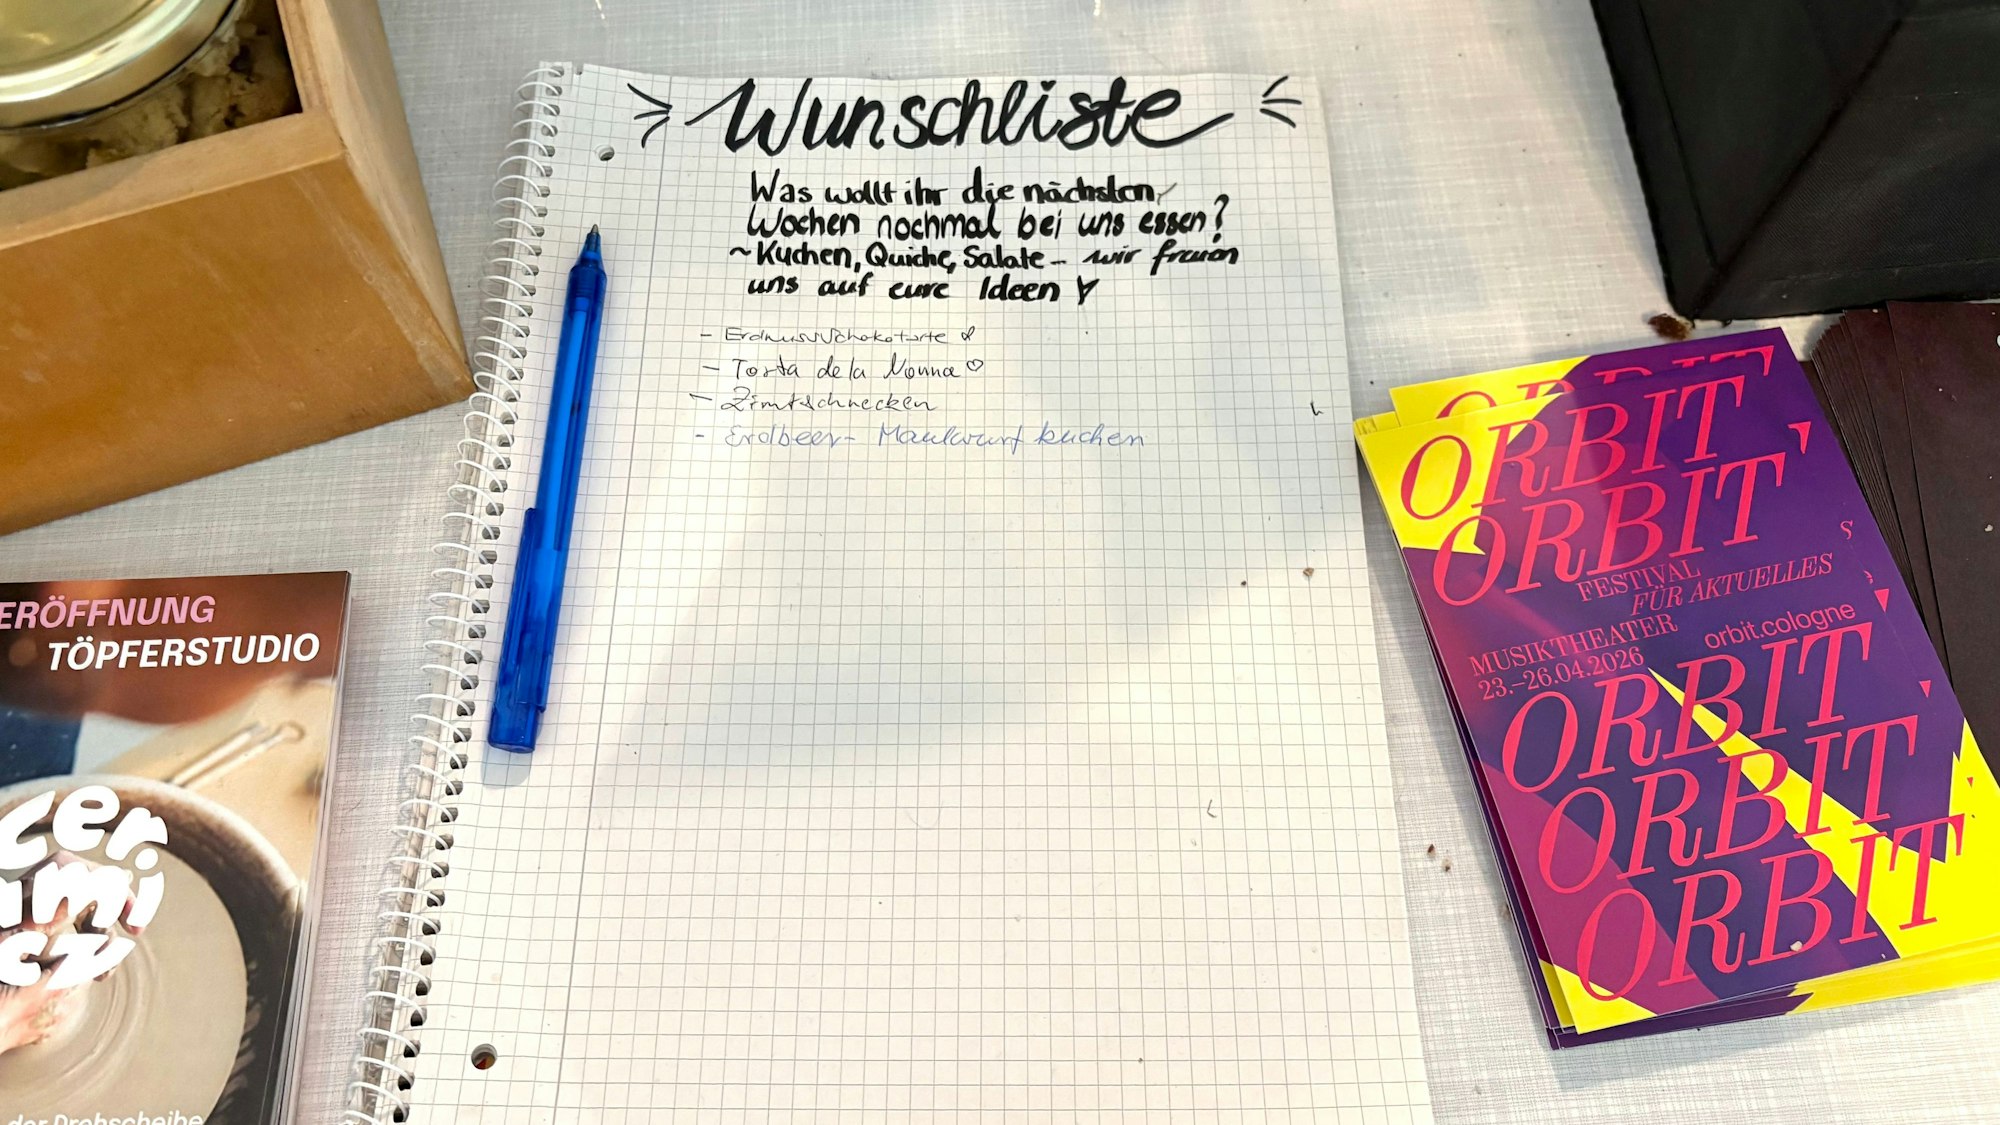 Wunschliste
Was wollt ihr die nächsten
Wochen nochmal bei uns essen?
~Kuchen, Quiche, Salate - wir freuen
uns auf eure Ideen
- Erdnuss
- Torta de la Nonna ♡
- Zimtschnecken
- Erdbeer- Maulwurfkuchen
ERÖFFNUNG
TÖPFERSTUDIO
cer.
ami
cz
der Drehscheibe
ORBIT
ORBIT
ORBIT
FESTIVAL
FÜR AKTUELLES
MUSIKTHEATER
23.–26.04.2026
orbit.cologne
ORBIT
ORBIT
ORBIT